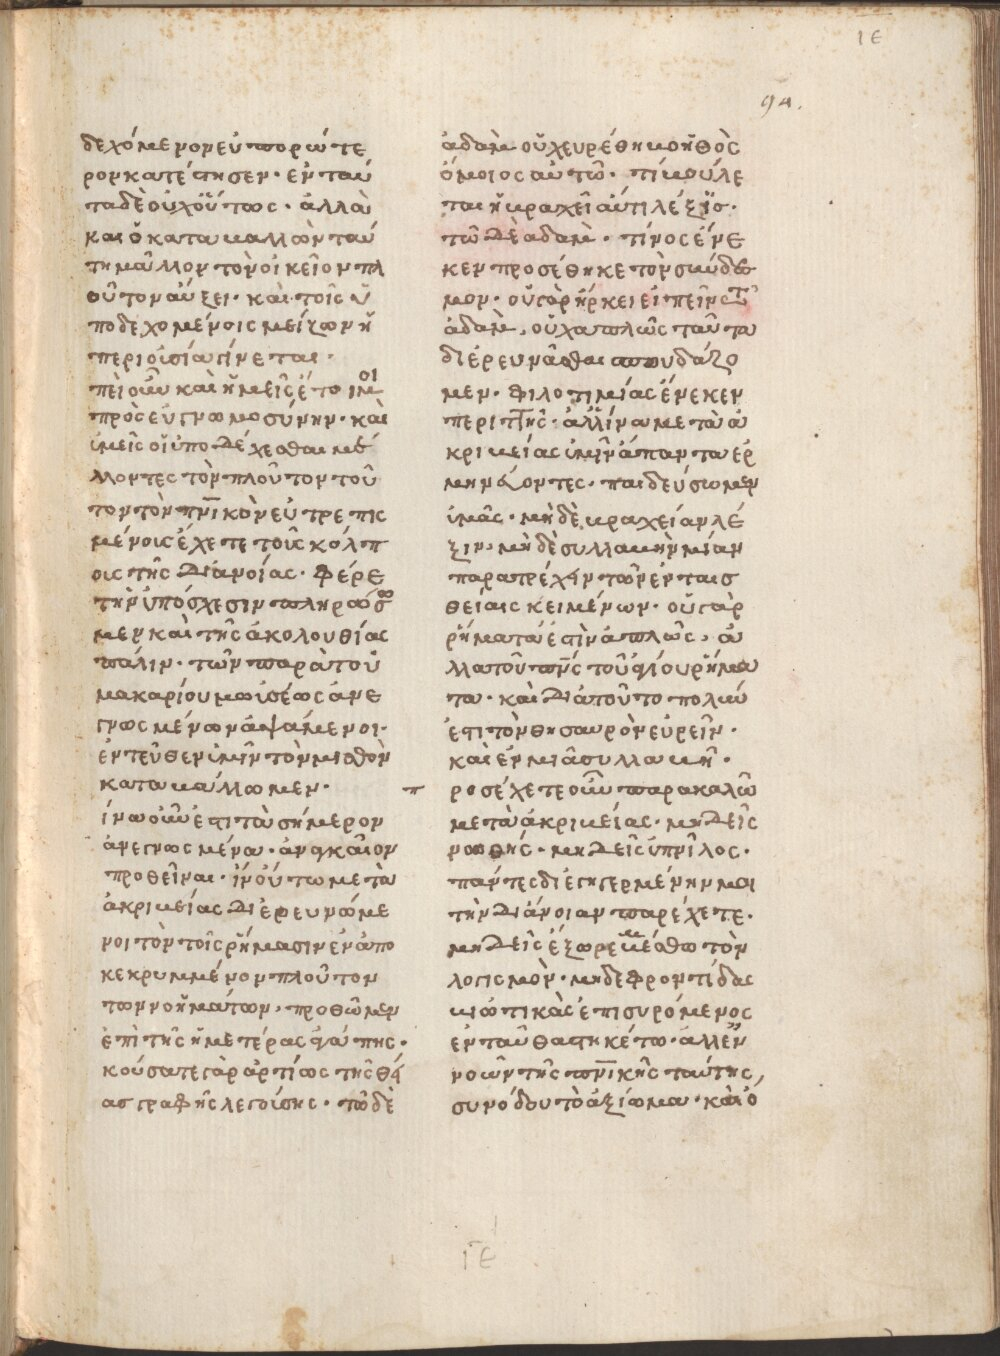 ΙΕ
94.
δεχόμενον εὐπορώτε
ρον κατέστησεν· ἐνταύ
τα δὲ οὐχ οὕτως· ἀλλὰ
καὶ ὁ καταβαλλὼν ταύ
τη μᾶλλον τὸν οἰκεῖον πλ
οῦτον αὔξει· καὶ τοῖς ὑ
ποδεχομένοις μείζων ἡ
περιουσία γίνεται·
πεὶ οὖν καὶ ἡμεῖς ἕτοιμοι
πρὸς εὐγνωμοσύνην· καὶ
ὑμεῖς οἱ ὑποδέχεσθαι μέ
λλοντες τὸν πλοῦτον τοῦ
τον τὸν πνικὸν εὐτρεπις
μένοις ἔχετε τοῖς κόλπ
οις τῆς διανοίας· φέρε
τὴν ὑπόσχεσιν πληρώσω
μεν καὶ τῆς ἀκολουθίας
πάλιν· τῶν παρὰ τοῦ
μακαρίου μωϋσέως ἀνε
γνωσμένων ἁψάμενοι·
ἐντεῦθεν ὑμῖν τὸν μισθὸν
καταβάλλωμεν·
ἵν' ὧ οὖν ἐστὶ τὰ σήμερον
ἀνεγνωσμένα· ἀναγκαῖον
προθεῖναι· ἵν' οὕτω μετὰ
ἀκριβείας διερευνώμε
νοι τὸν τοῖς ρήμασιν ἐναπο
κεκρυμμένον πλοῦτον
τῶν νοημάτων· προθῶμεν
ἐπὶ τῆς ἡμετέρας ἀγάπης·
κούσατε γὰρ ἀρτίως τῆς θεί
ας γραφῆς λεγούσης· τῶ δὲ
ἀδὰμ οὐχ εὑρέθη βοηθὸς
ὅμοιος αὐτῶ· τί βούλε
ται ἡ βραχεῖ αὕτι λέξης·
τῶ δὲ ἀδὰμ· τίνος ἕνε
κεν προσέθηκε τὸν σύνδεσ
μον· οὐ γὰρ ἤρκει εἰπεῖν τῶ
ἀδὰμ, οὐχ ἁπλῶς ταῦτα
διέρευνᾶσθαι σπουδάζο
μεν· φιλοτιμίας ἕνεκεν
περιττῆς· ἀλλ' ἵνα μετὰ ἀ
κριβείας ὑμῖν ἅπαντα ἑρ
μηνεύοντες· παιδεύσωμεν
ὑμᾶς· μὴ δὲ βραχείαν λέ
ξιν· μὴ δὲ συλλαβὴν μίαν
παρατρέχειν τῶν ἐν ταις
θείαις κειμένων· οὐ γὰρ
ρήματά ἐστὶν ἁπλῶς, ἀ
λλὰ τοῦ πνς τοῦ ἁγίου ρήμα
τα· καὶ διὰ τοῦτο πολὺν
ἐστὶ τὸν θησαυρὸν εὑρεῖν·
καὶ ἐν μιᾶ συλλαβῆ·
π ροσέχετε οὖν παρακαλῶ
μετὰ ἀκριβείας· μηδεὶς
νωθής· μηδεὶς ὑπνίλος·
πάντες διεγηγερμένην μοι
τὴν διάνοιαν παρέχετε·
μηδεὶς ἐξωρεμβέσθω τὸν
λογισμὸν· μὴ δὲ φροντίδας
βιωτικὰς ἐπισυρόμενος
ἐνταῦθα στηκέτω· ἀλλ' ἐν
νοῶν τῆς πνικῆς ταύτης,
συνόδου τὸ ἀξίωμα· καὶ ὁ
ΙΕ